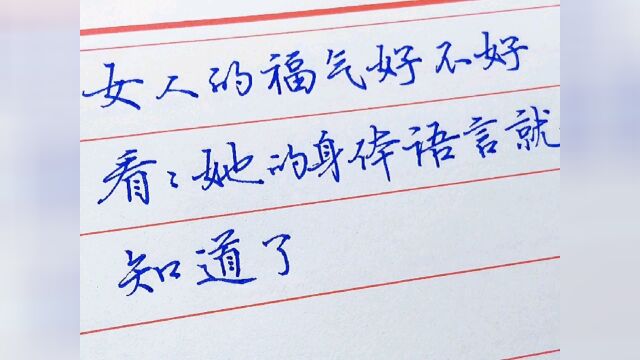 女人的福气好不好
看看她的身体语言就
知道了